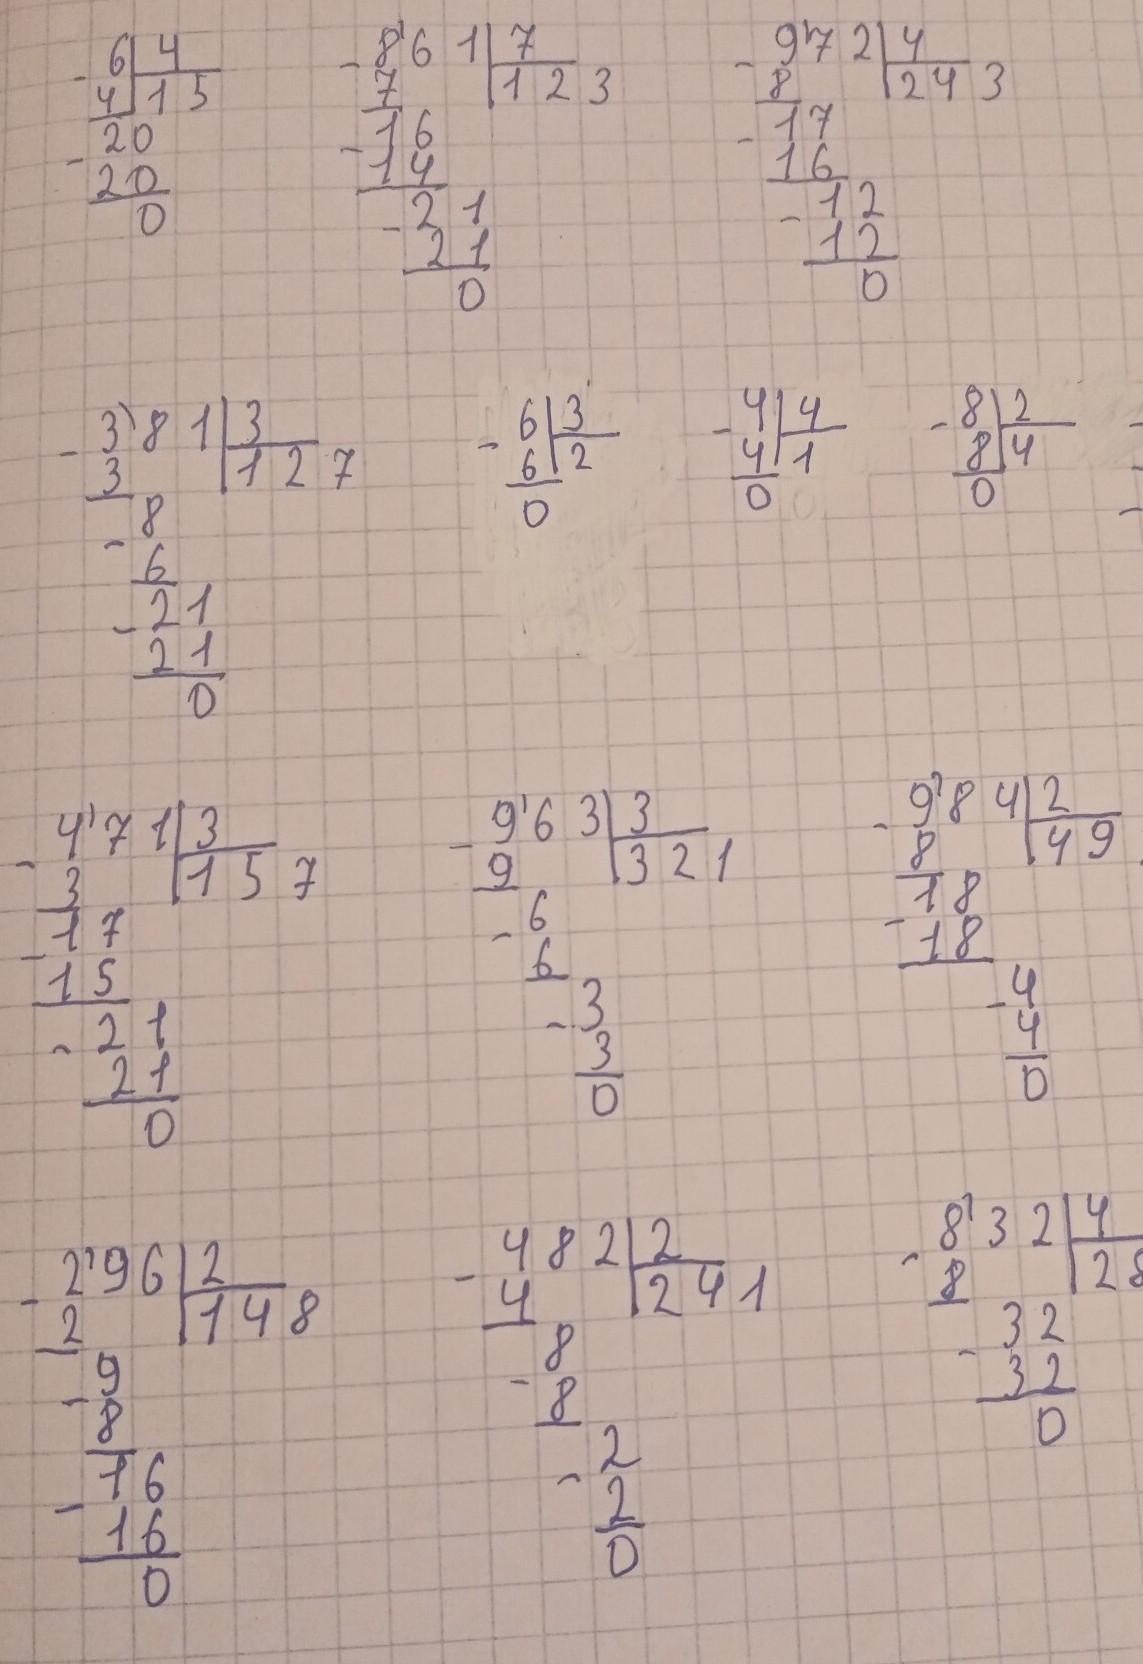 - 6 | 4
4 | 1 5
- 20
20
0
- 8' 6 1 | 7
7 | 1 2 3
- 1 6
1 4
- 2 1
2 1
0
- 9' 7 2 | 4
8 | 2 4 3
- 1 7
1 6
- 1 2
1 2
0
- 3' 8 1 | 3
3 | 1 2 7
- 8
6
- 2 1
2 1
0
- 6 | 3
6 | 2
0
- 4 | 4
4 | 1
0
- 8 | 2
8 | 4
0
- 4' 7 1 | 3
3 | 1 5 7
- 1 7
1 5
- 2 1
2 1
0
- 9' 6 3 | 3
9 | 3 2 1
- 6
6
- 3
3
0
- 9' 8 4 | 2
8 | 4 9
- 1 8
1 8
- 4
4
0
- 2' 9 6 | 2
2 | 1 4 8
- 9
8
- 1 6
1 6
0
- 4 8 2 | 2
4 | 2 4 1
- 8
8
- 2
2
0
- 8' 3 2 | 4
8 | 2 8
- 3 2
3 2
0